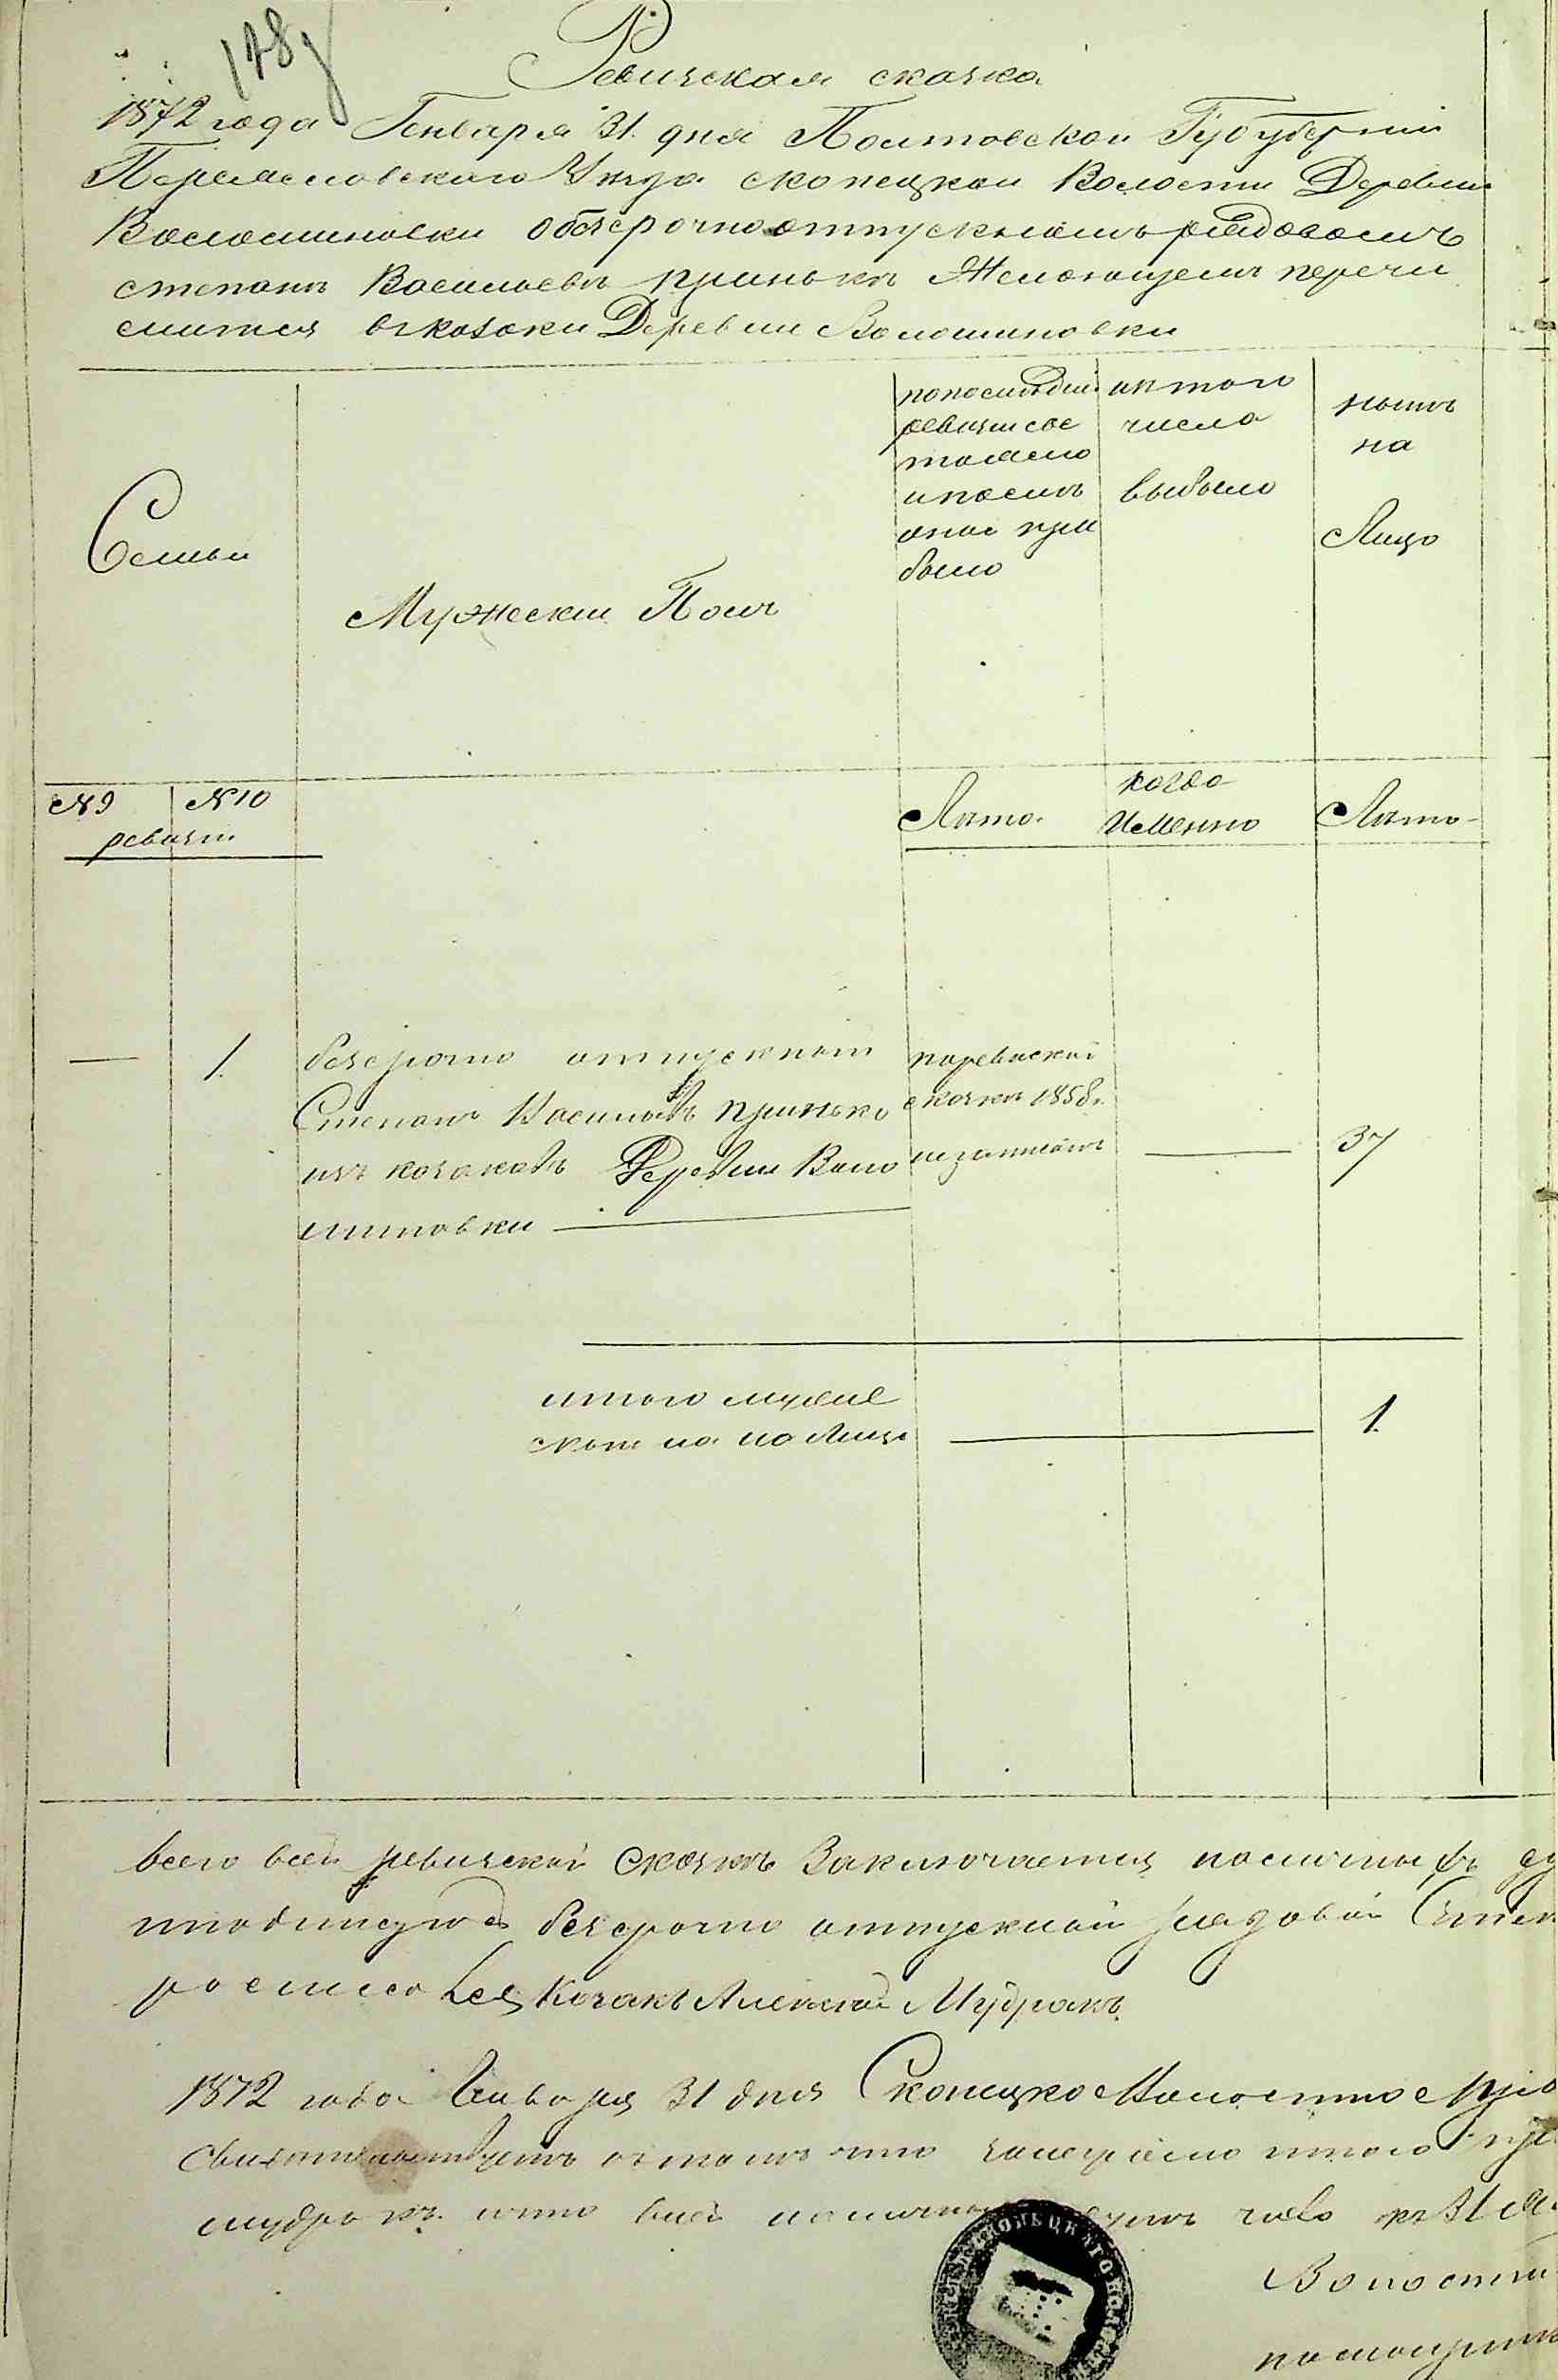 178
Ревизская сказка
1872 года Генваря 31. дня Полтавской Губуберніи
Переяславскаго Уезда скопецкои Волости Деревни
Волошиновки обезсрочноотпускномъ рядовомъ
степане Васильеве принькъ Желающемъ перечи
слится вказаки Деревни Волошиновки
Семьи
Мужескии Полъ
попоследней ревизіи состояло ипослѣ оной прибыло
изтого числа выбыло
ныне на Лицо
№ 9 № 10
ревизіи
Лета.
когда Именно
Лета
— 1.
безсрочно отпускныи
Степанъ Васильевъ принько
изъ козаковъ Деревни Воло
шиновки
поревиской
скаске 1858 г.
незаписанъ
—
37
итого мужеска на Лицо
—
1.
всего всей ревизской Сказкѣ Заключается наличныхъ
безсрочно отпускной рядовой
росписался Козакъ Алексей Мудракъ
1872 года Генваря 31 дня Скопецкое Волостное
свидетельствуетъ втомъ что
мудракъ ичто
31
Волостн